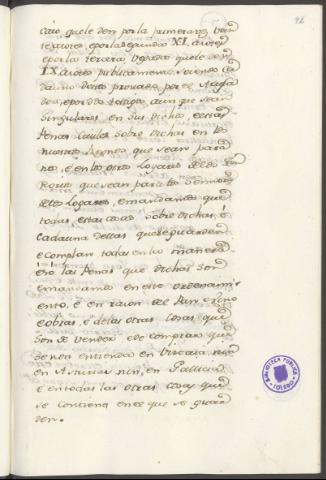 12
caio, quele den por la primera vez, vein
te azotes, e por la segunda XL azotes
e por la tercera vegada quele den
LX azotes publicamente, seiendo ca
da uno destos provado por el Alcal
de, e por dos testigos, aunque sean
singulares en sus dichos, e estas
Penas Caidas sobre dichas en los
nuestros Reynos que sean para
nos, e en los otros Logares de los Sen
Rorios que sean para los Sennores
de los Logares, e mandamos que
todas estas cosas sobre dichas, e
cada una dellas que se guarden
e complan todas en la manera
e so las Penas que dichas son
e mandamos en este ordenami
ento, e en razon del Pan e vino
e obras, e delas otras cosas que
son de vender e de comprar que
se non entienda en vizcaia, nin
en Asturias nin en Gallicia
e en todas las otras cosas que
se contiene en el que se guar
den.
BIBLIOTECA PUBLICA
TOLEDO